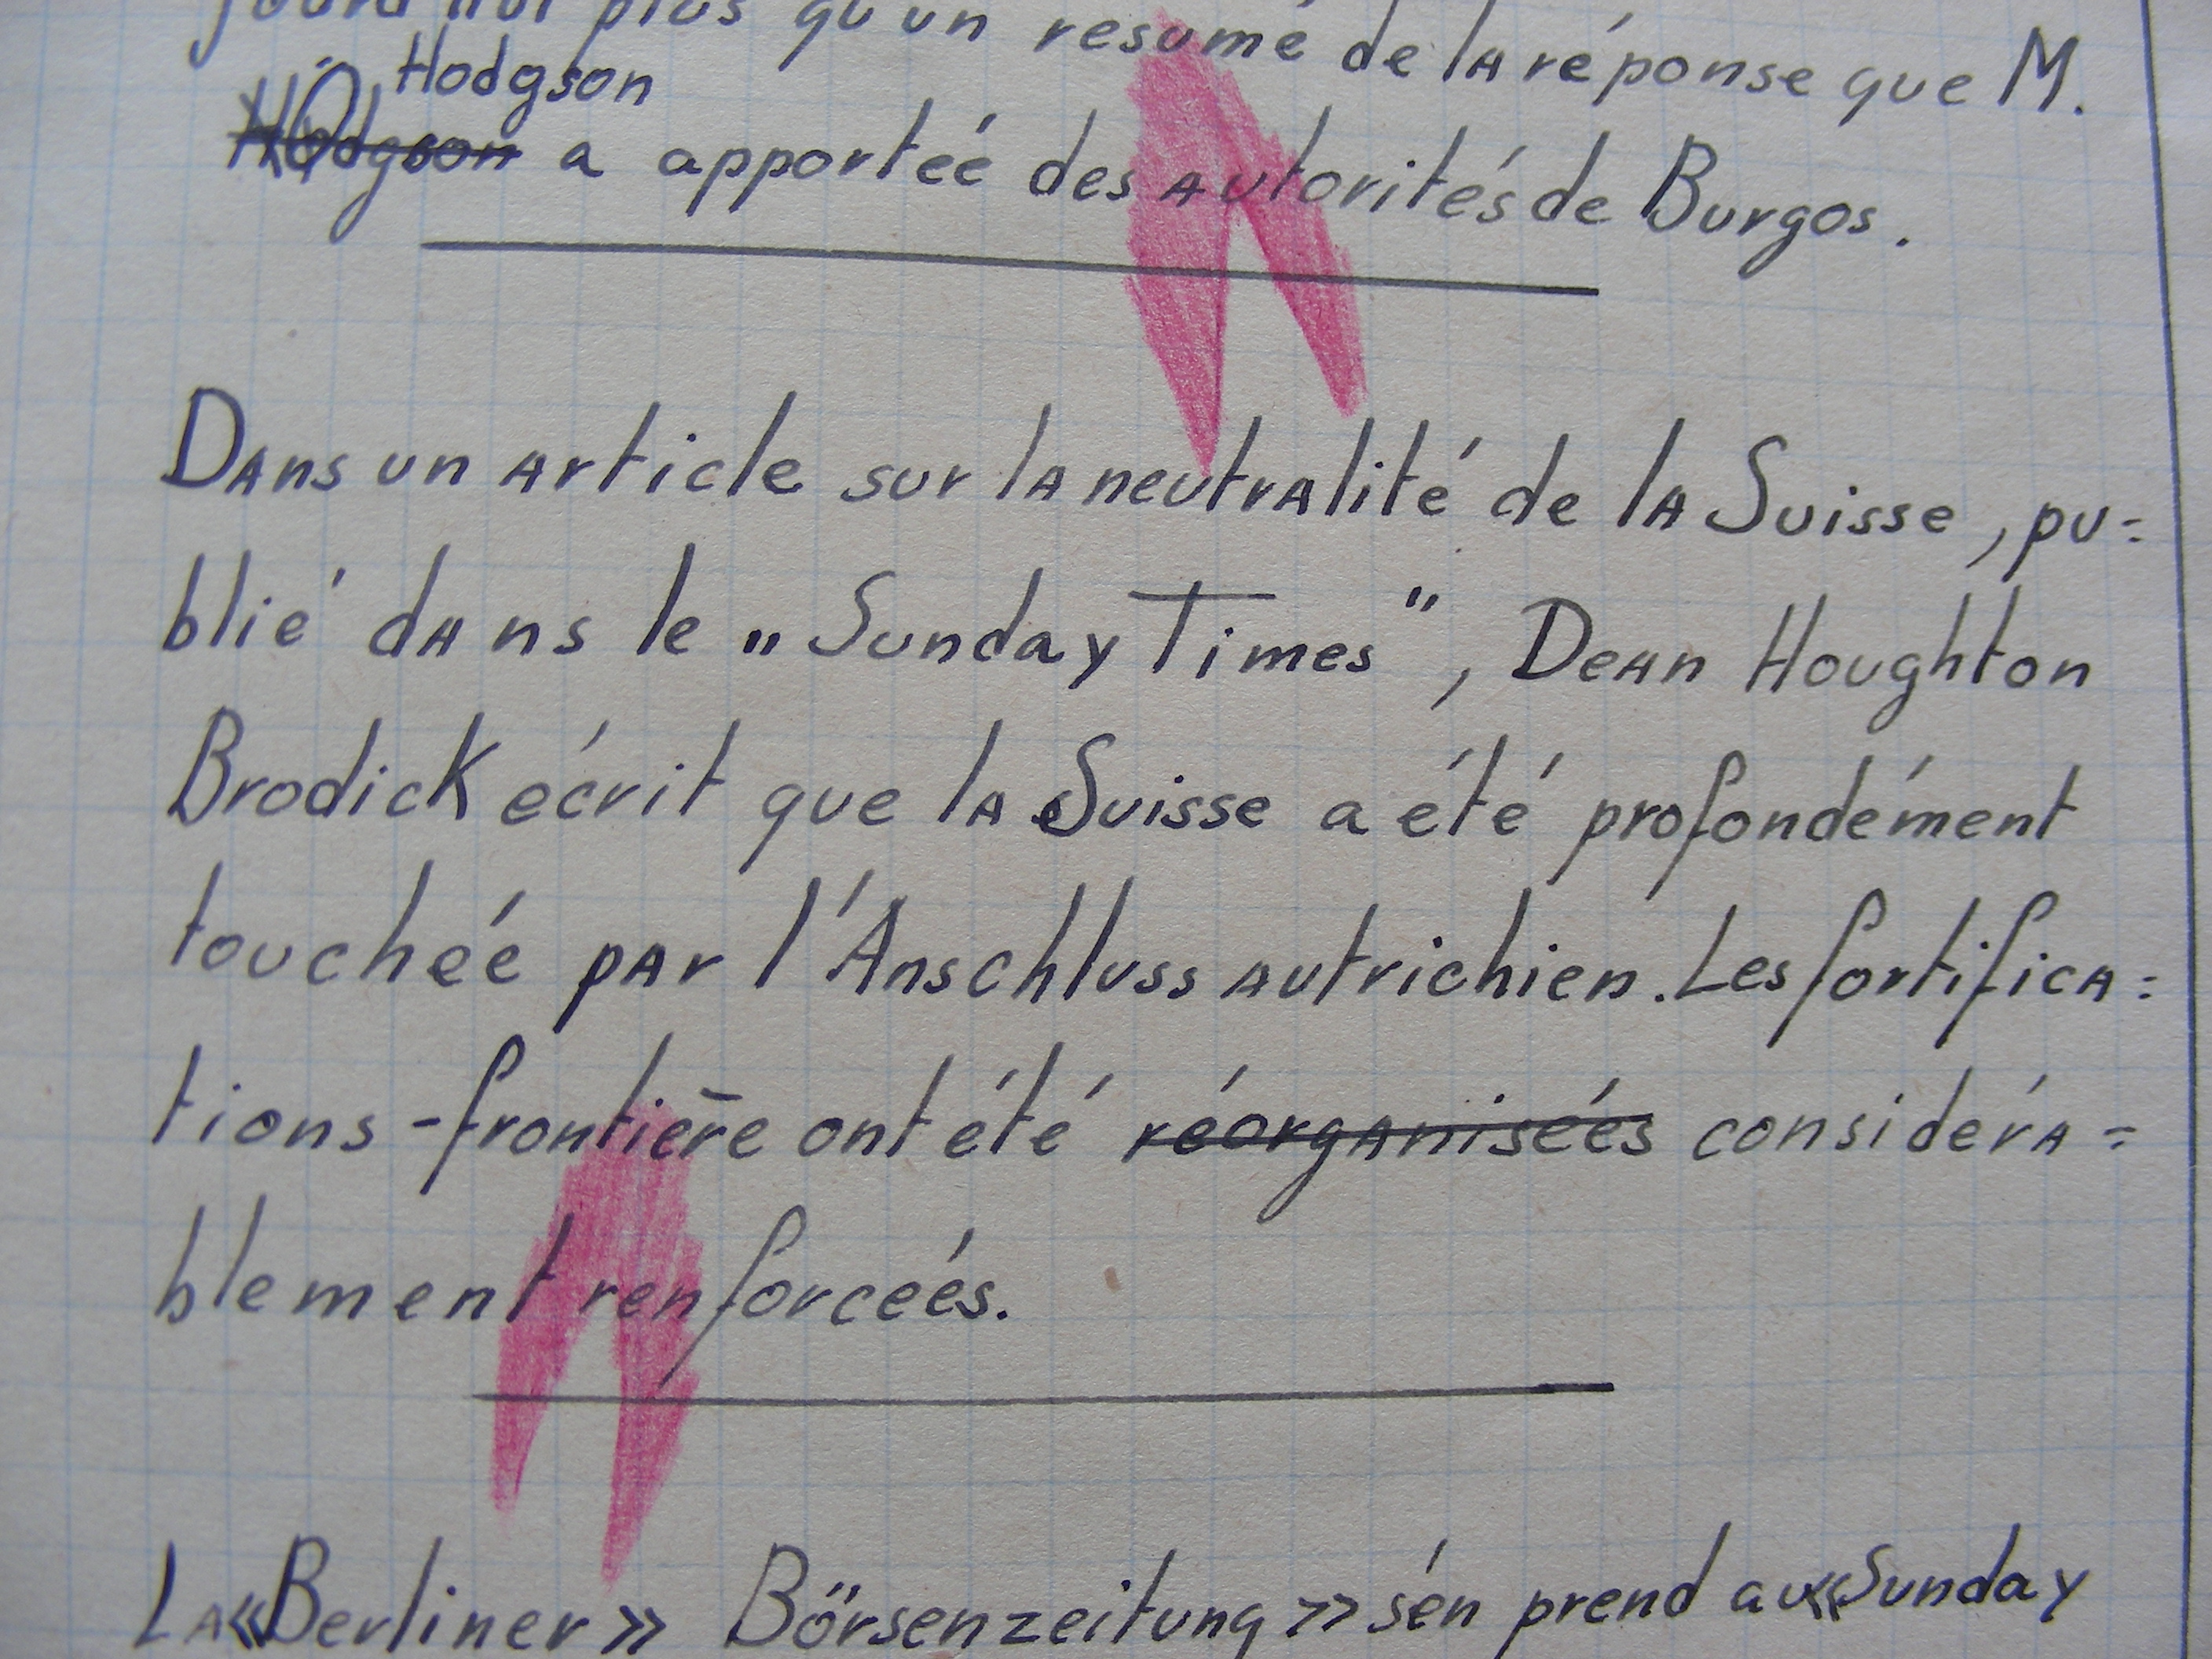 jourd'hui plus qu'un resumé de la réponse que M.
Hodgson
Hodgson a apportée des autorités de Burgos.
Dans un article sur la neutralité de la Suisse, pu=
blié dans le „Sunday Times", Dean Houghton
Brodick écrit que la Suisse a été profondément
touchée par l'Anschluss autrichien. Les fortifica=
tions-frontière ont été réorganisées considéra=
blement renforcées.
La «Berliner» Börsenzeitung» s'en prend au «Sunday